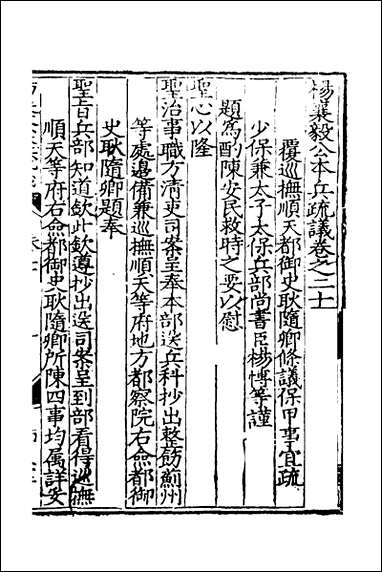 楊襄毅公本兵疏議卷之二十
覆巡撫順天都御史耿隨卿條議保甲事宜疏
少保兼太子太保兵部尚書臣楊博等謹
題爲酌陳安民救時之要以慰
聖心以隆
聖治事職方清吏司案呈奉本部送兵科抄出整飭薊州
等處邉備兼巡撫順天等府地方都察院右僉都御
史耿隨卿題奉
聖旨兵部知道欽此欽遵抄出送司案呈到部看得巡撫
順天等府右僉都御史耿隨卿所陳四事均属詳安